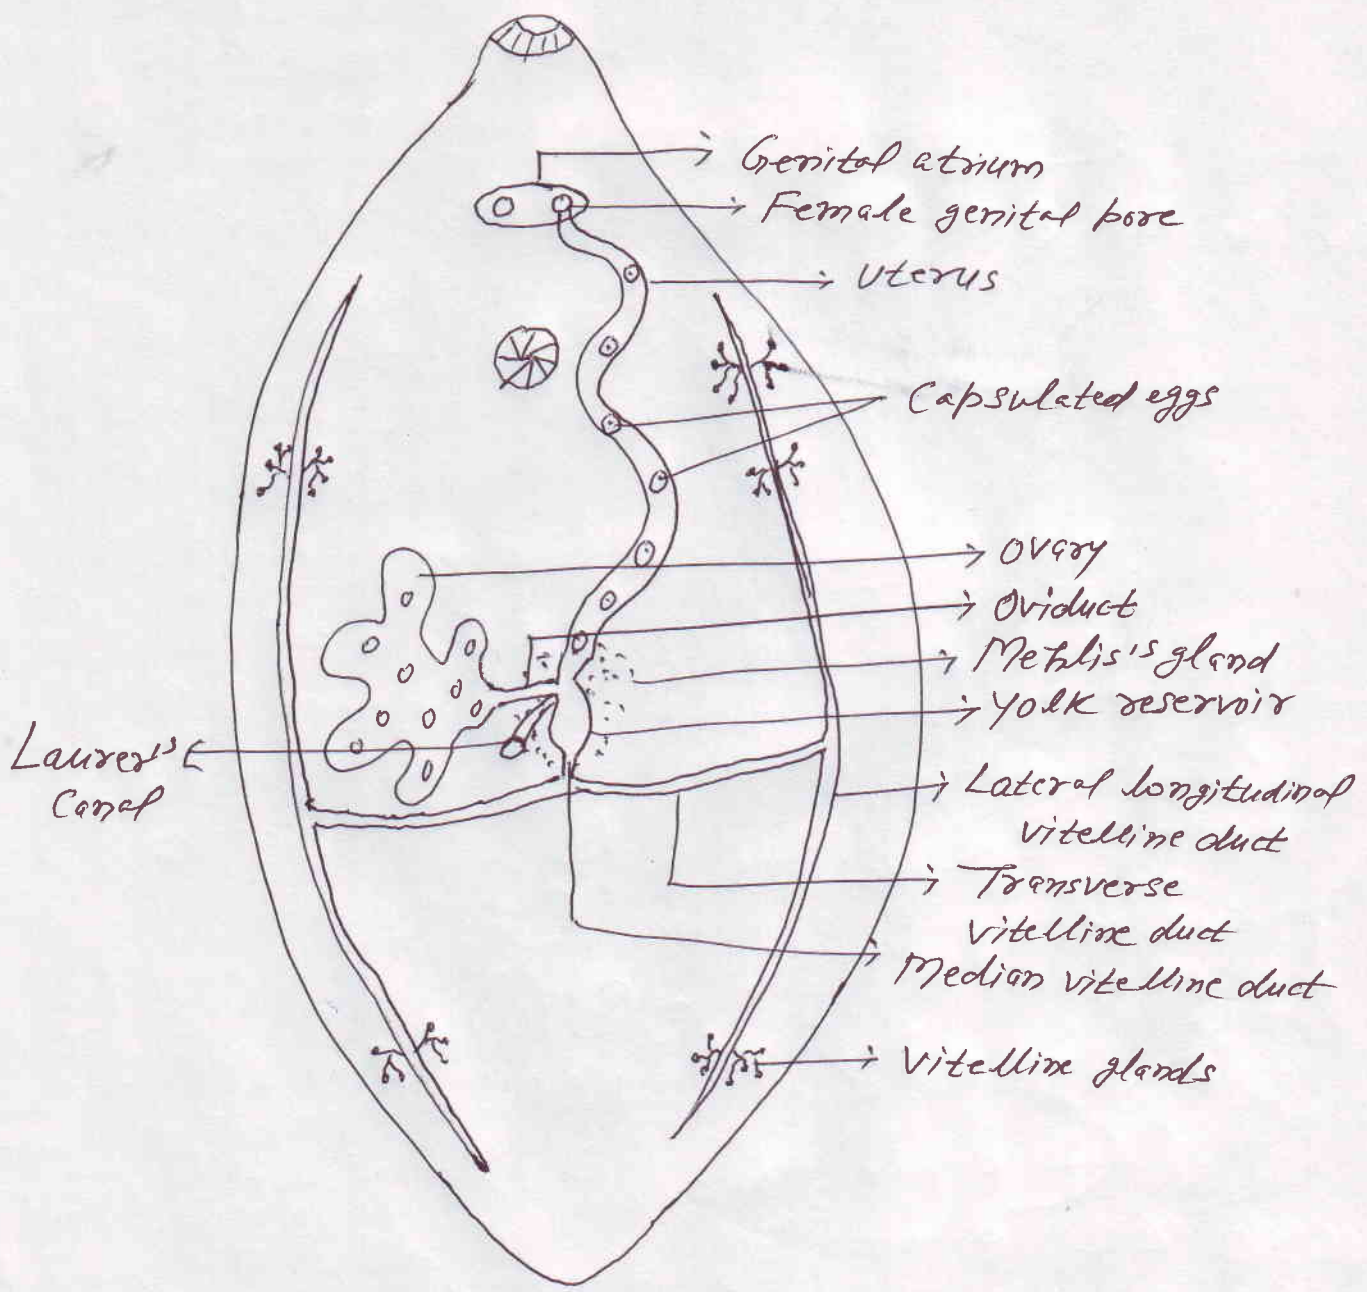 Genital atrium
Female genital pore
Uterus
Capsulated eggs
Ovary
Oviduct
Mehlis's gland
Yolk reservoir
Laurer's
Canal
Lateral longitudinal
vitelline duct
Transverse
vitelline duct
Median vitelline duct
Vitelline glands